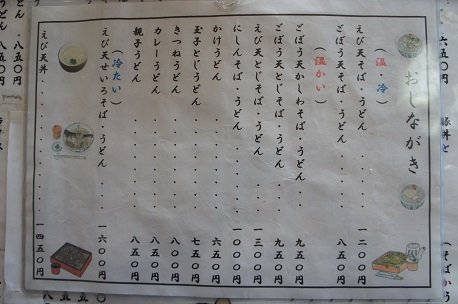 六五〇円
豚丼と
おしながき
（温・冷）
えび天そば・うどん・・・・一二〇〇円
ごぼう天そば・うどん・・・・八五〇円
（温かい）
ごぼう天かしわそば・うどん・・九五〇円
ごぼう天とじそば・うどん・・・九五〇円
えび天とじそば・うどん・・・一三〇〇円
にしんそば・うどん・・・・一〇〇〇円
かけうどん・・・・・・六五〇円
玉子とじうどん・・・・・七五〇円
きつねうどん・・・・・・八〇〇円
カレーうどん・・・・・・八五〇円
親子うどん・・・・・・八五〇円
（冷たい）
えび天せいろそば・うどん・・一六〇〇円
えび天丼・・・・・・・一四五〇円
八五〇円